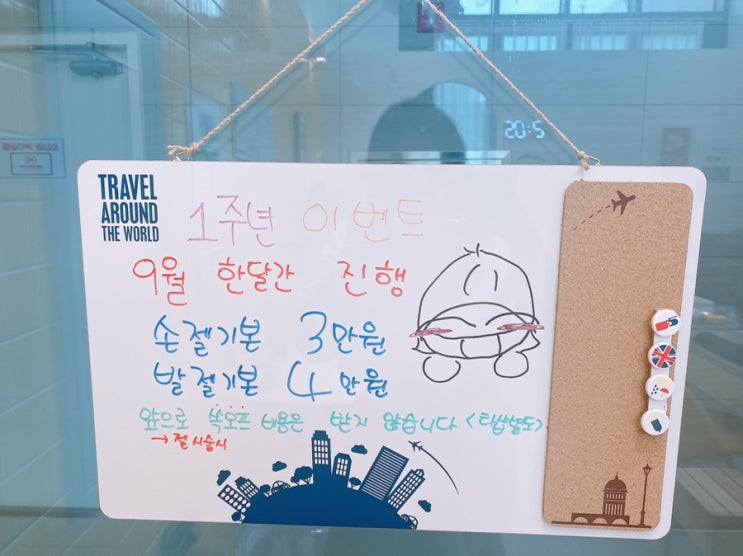 TRAVEL
AROUND
THE WORLD
1주년 이벤트
9월 한달간 진행
손젤기본 3만원
발젤기본 4만원
앞으로 쏙오프 비용은 받지 않습니다 <타샵별도>
→ 젤 시술시
20:5